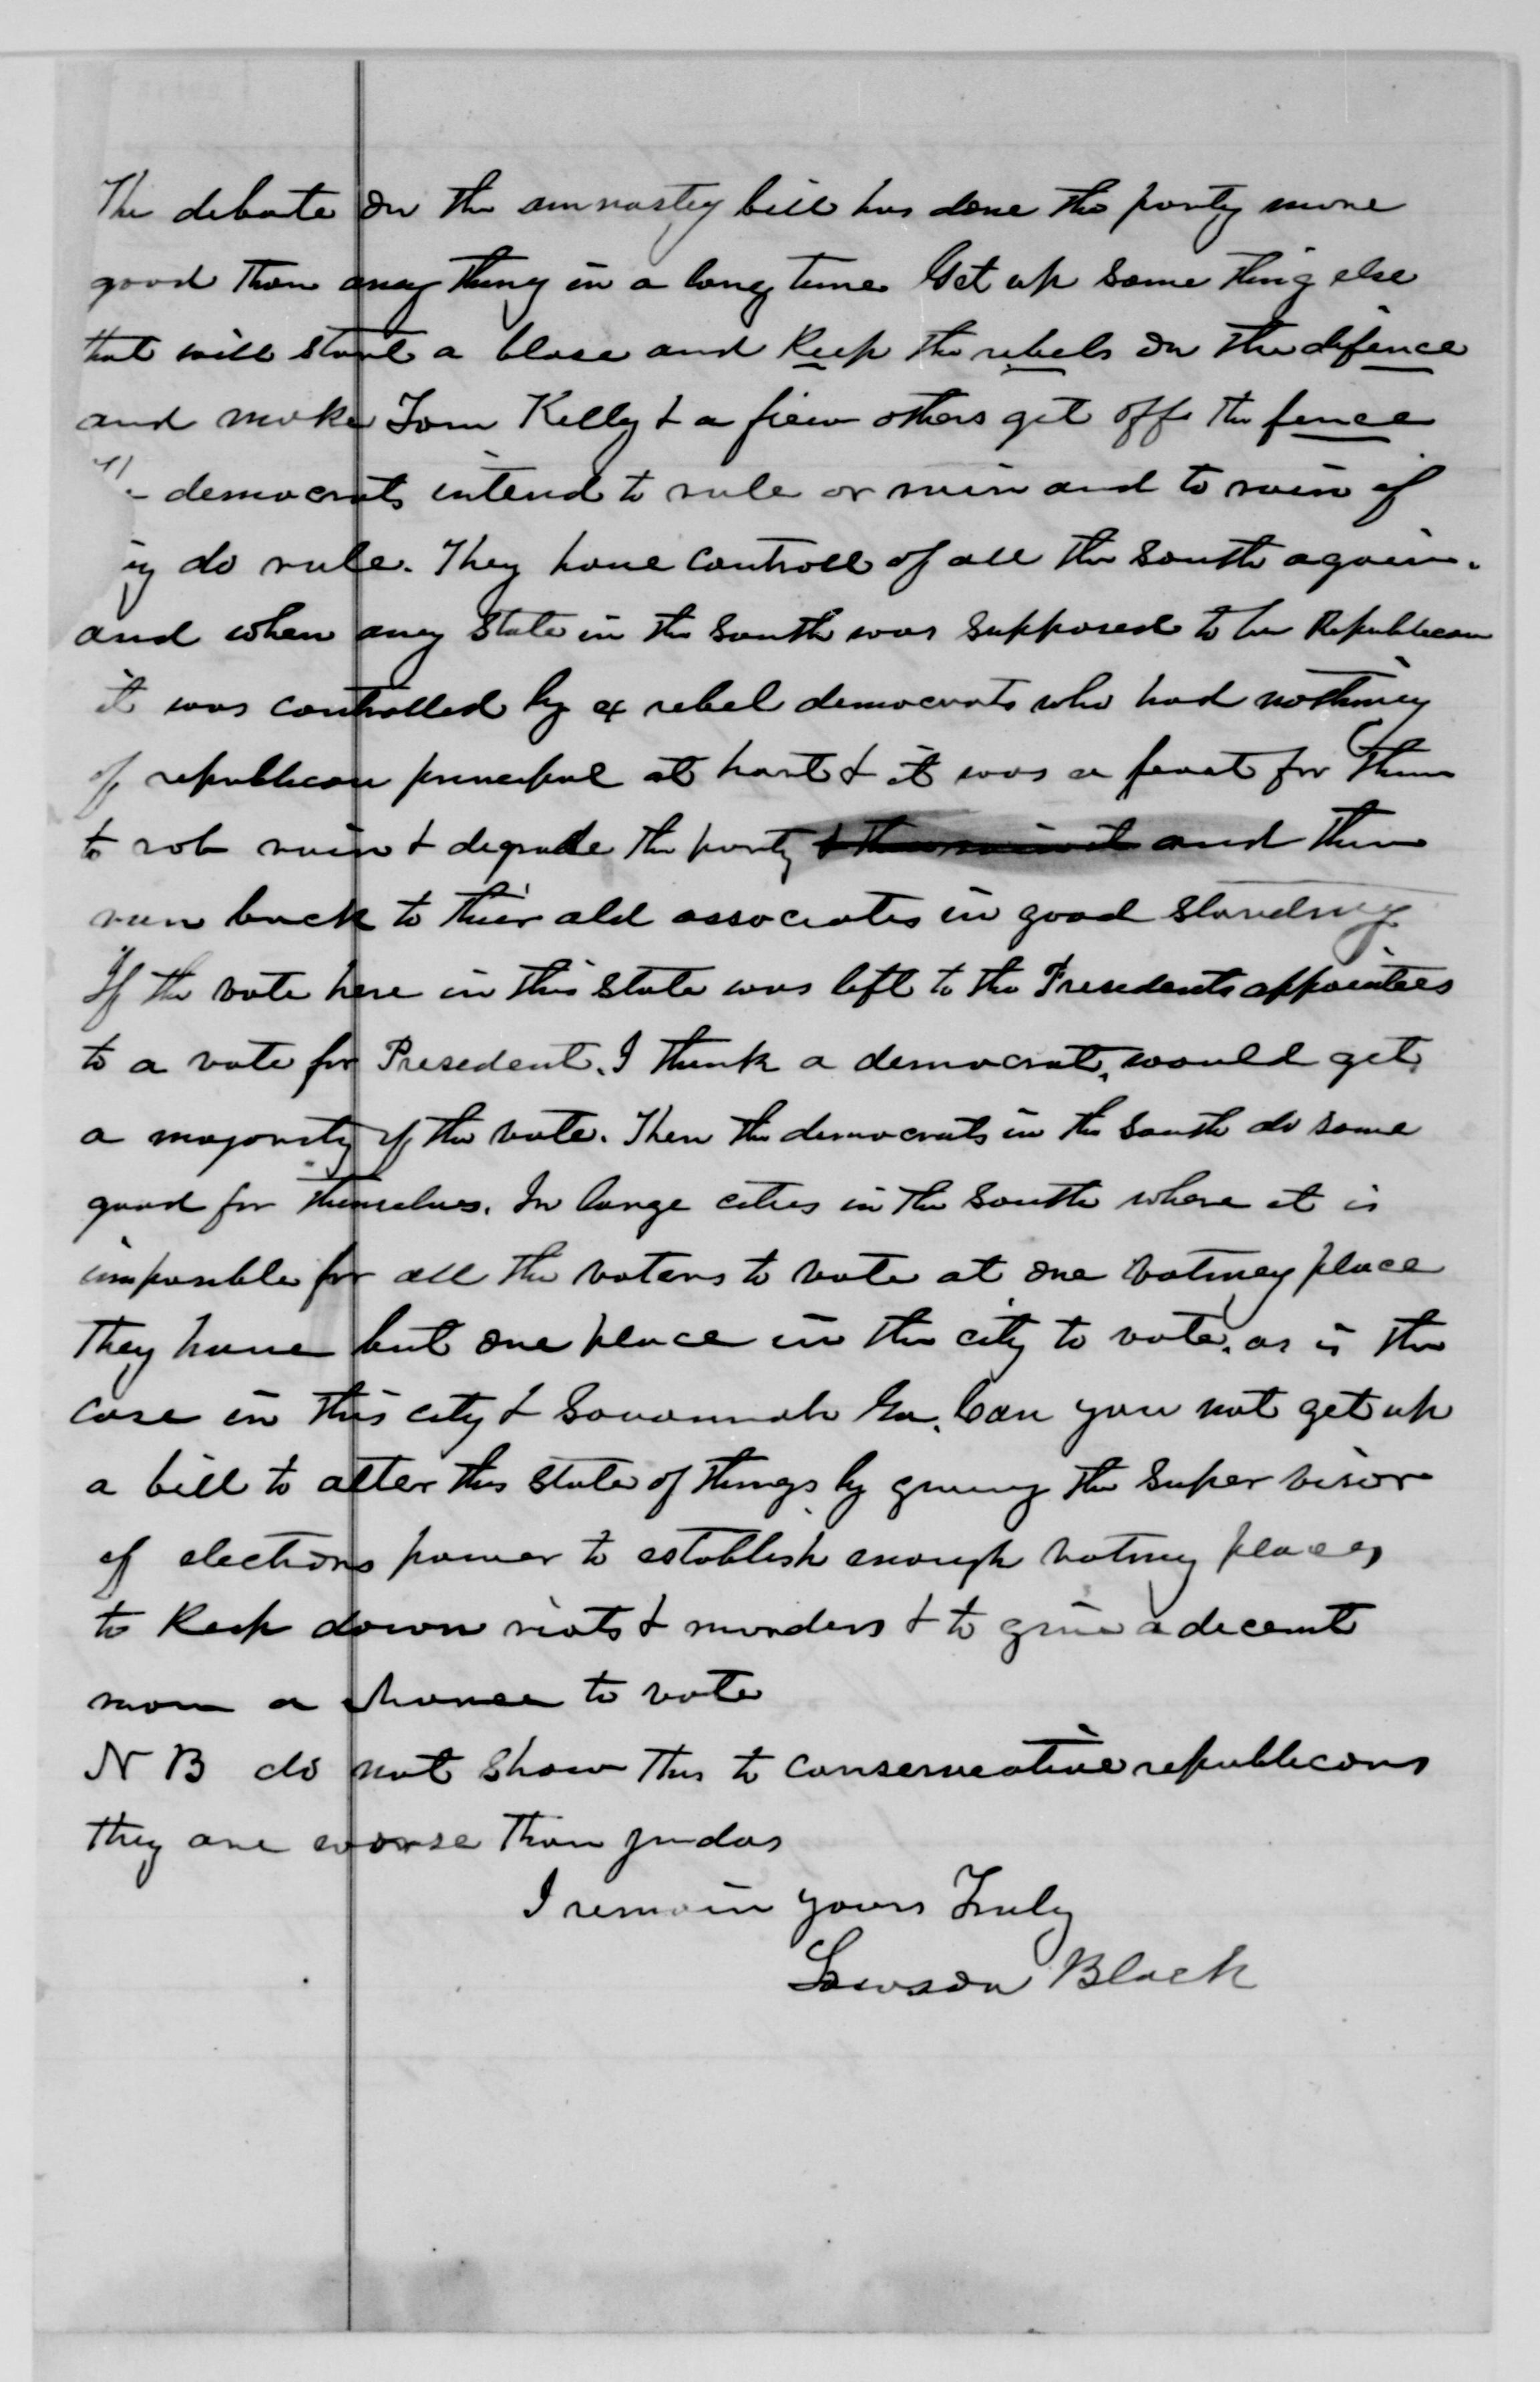 The debate on the amnastey bill has done the party more
good than any thing in a long time Get up some thing else
that will start a blase and Keep the rebels on the difence
and make Tom Kelly & a fiew others get off the fence
democrats intend to rule or ruin and to ruin if
do rule. They have controll of all the South again.
and when any State in the South was supposed to be Republican
it was controlled by ex rebel democrats who had nothing
of republican principal at hart & it was a feast for them
to rob ruin & degrade the party and then
run back to thier old associates in good standing
If the vote here in this State was left to the Presedents appointees
to a vote for Presedent. I think a democrat, would get
a majority of the vote. Then the democrats in the South do some
good for themselves. In large cities in the South where it is
imposible for all the voters to vote at one voting place
They have but one place in the city to vote, as is the
case in this city & Savannah Ga. Can you not get up
a bill to alter this State of things by giving the Super visor
of elections power to establish enough voting places
to Keep down riots & murders & to give a decent
man a chance to vote
N B do not show this to conservative republicans
they are worse than judas
I remain yours Truly
Lawson Black